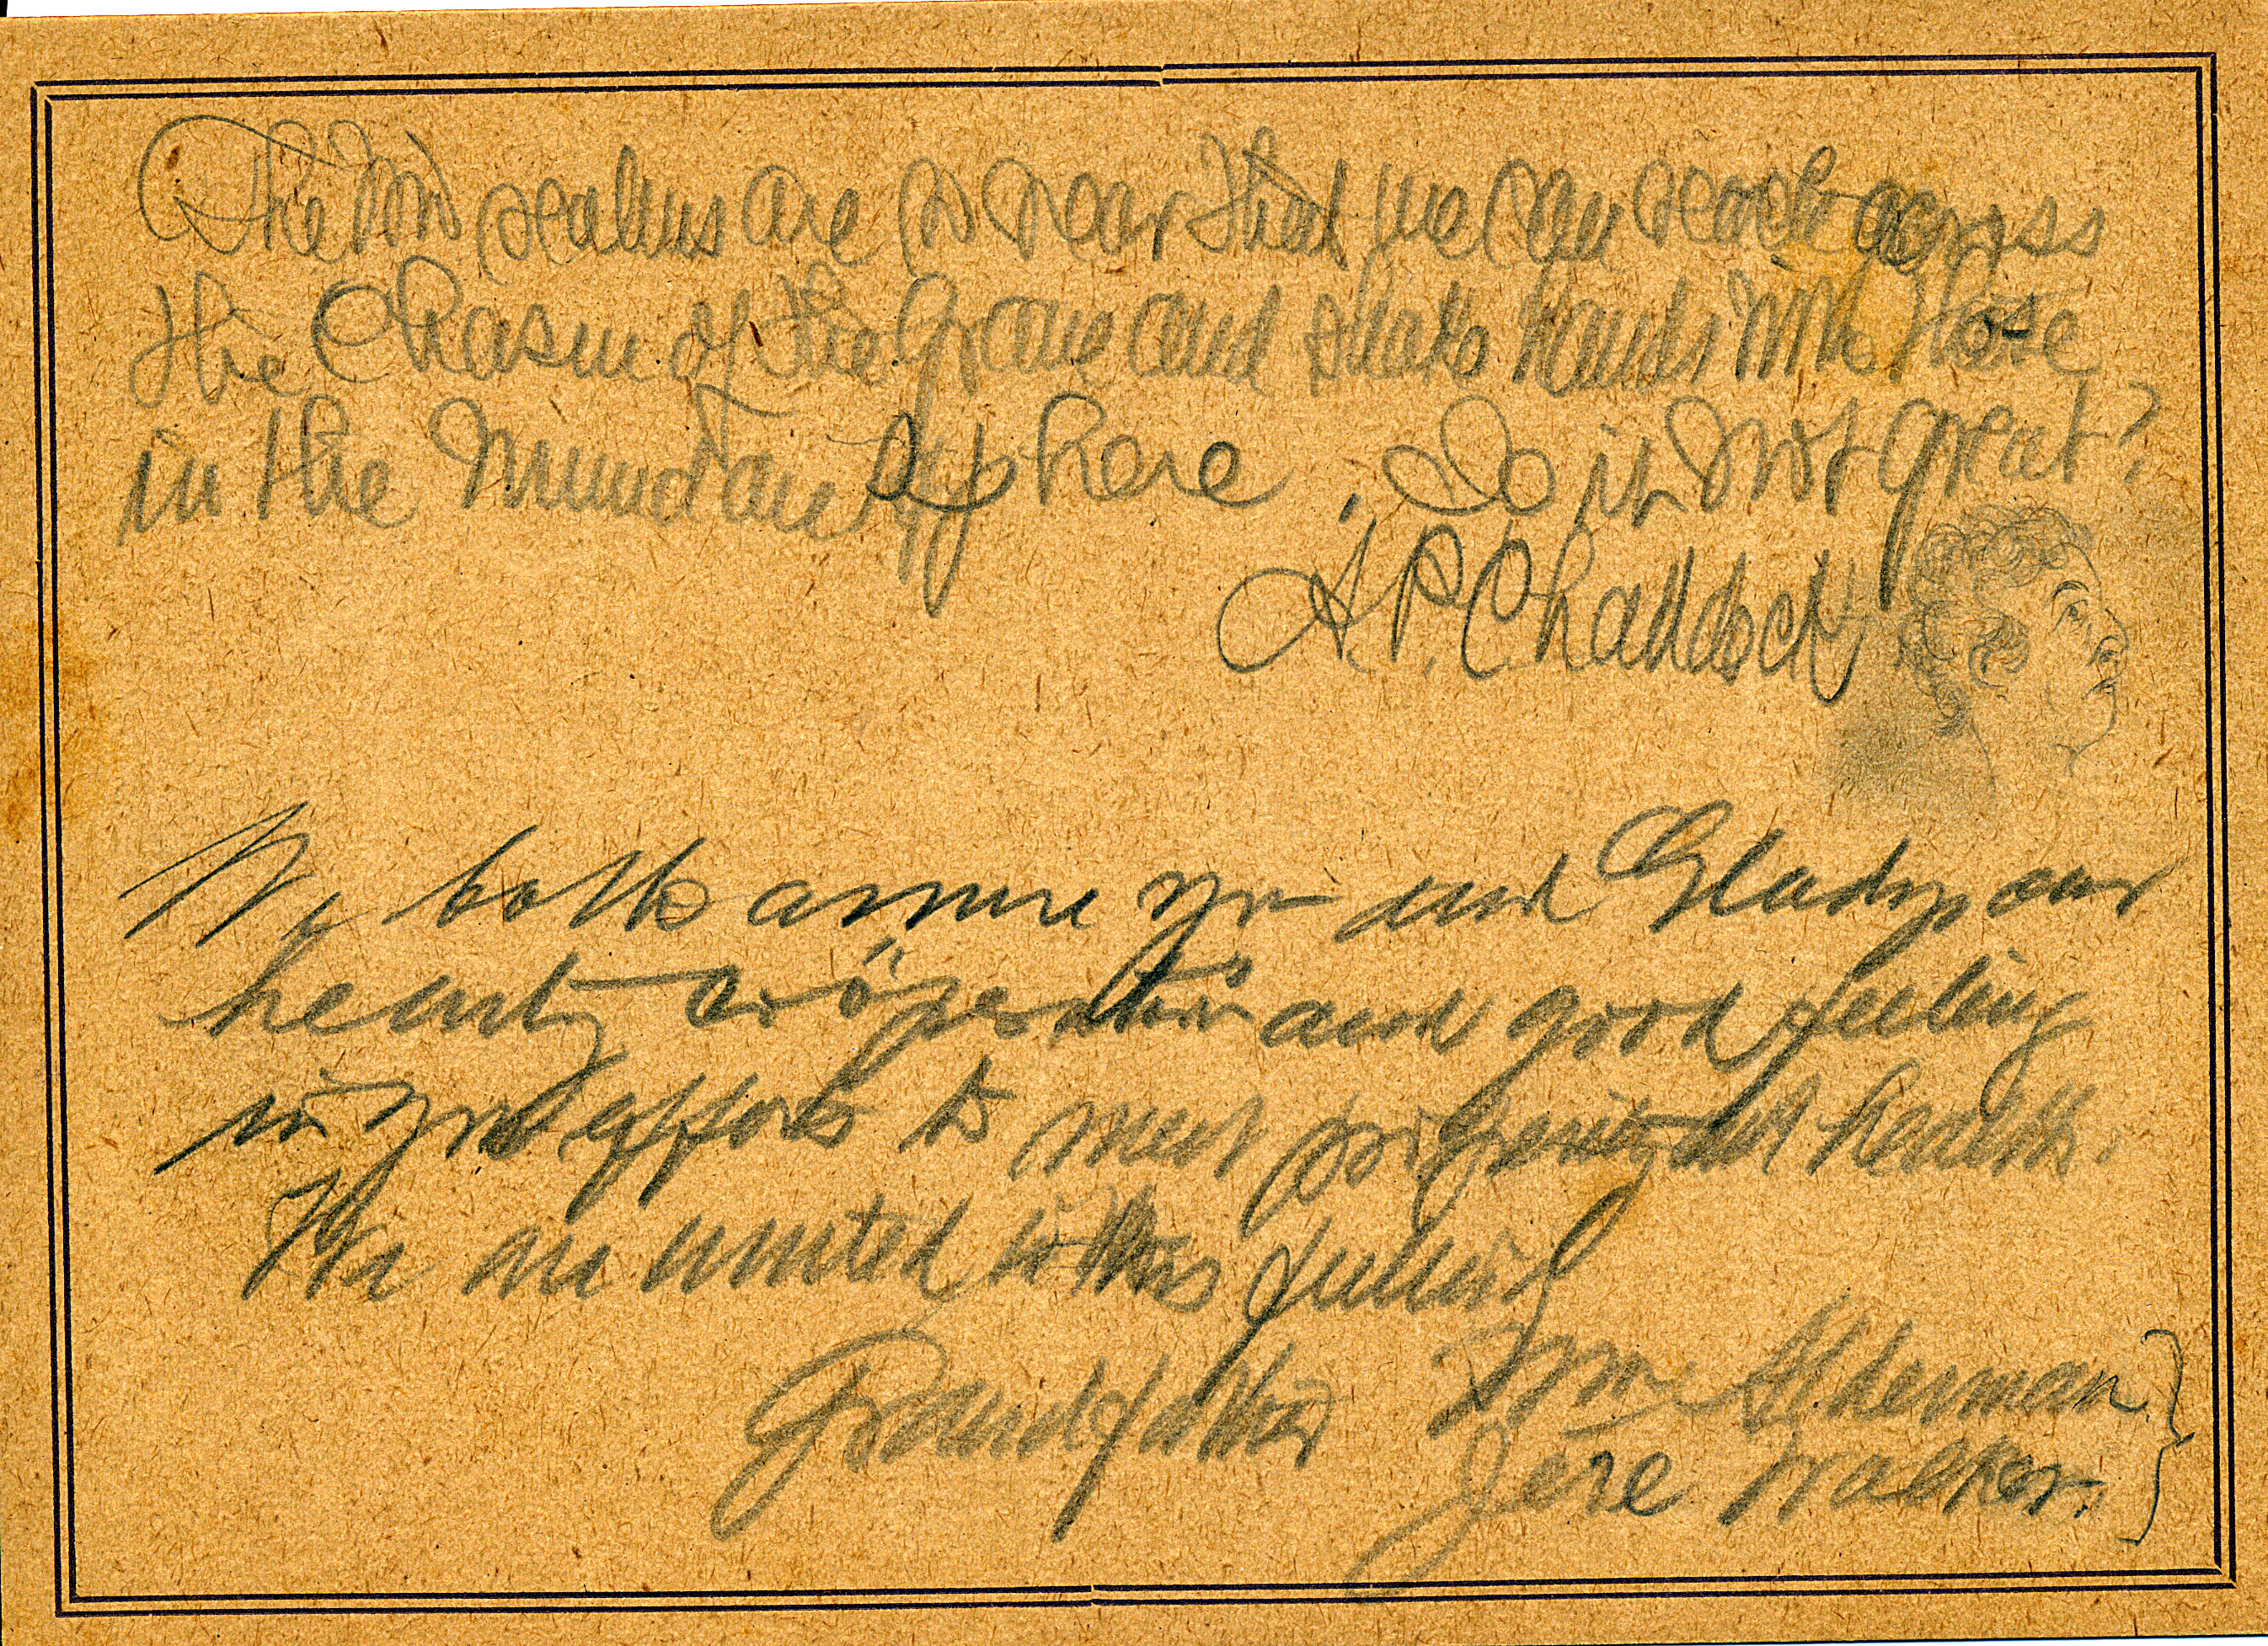 The two realms are so near that we can reach across
the Chasm of the Grave and shake hands with those
in the Mundane Sphere. Is it not great?
A.P. Chaddock
We both assure you and Gladys our
hearty coöperation and good feeling
in your efforts to meet prosperity and health.
We are united in this
Grandfather Wm Alderman
Jere Walker.